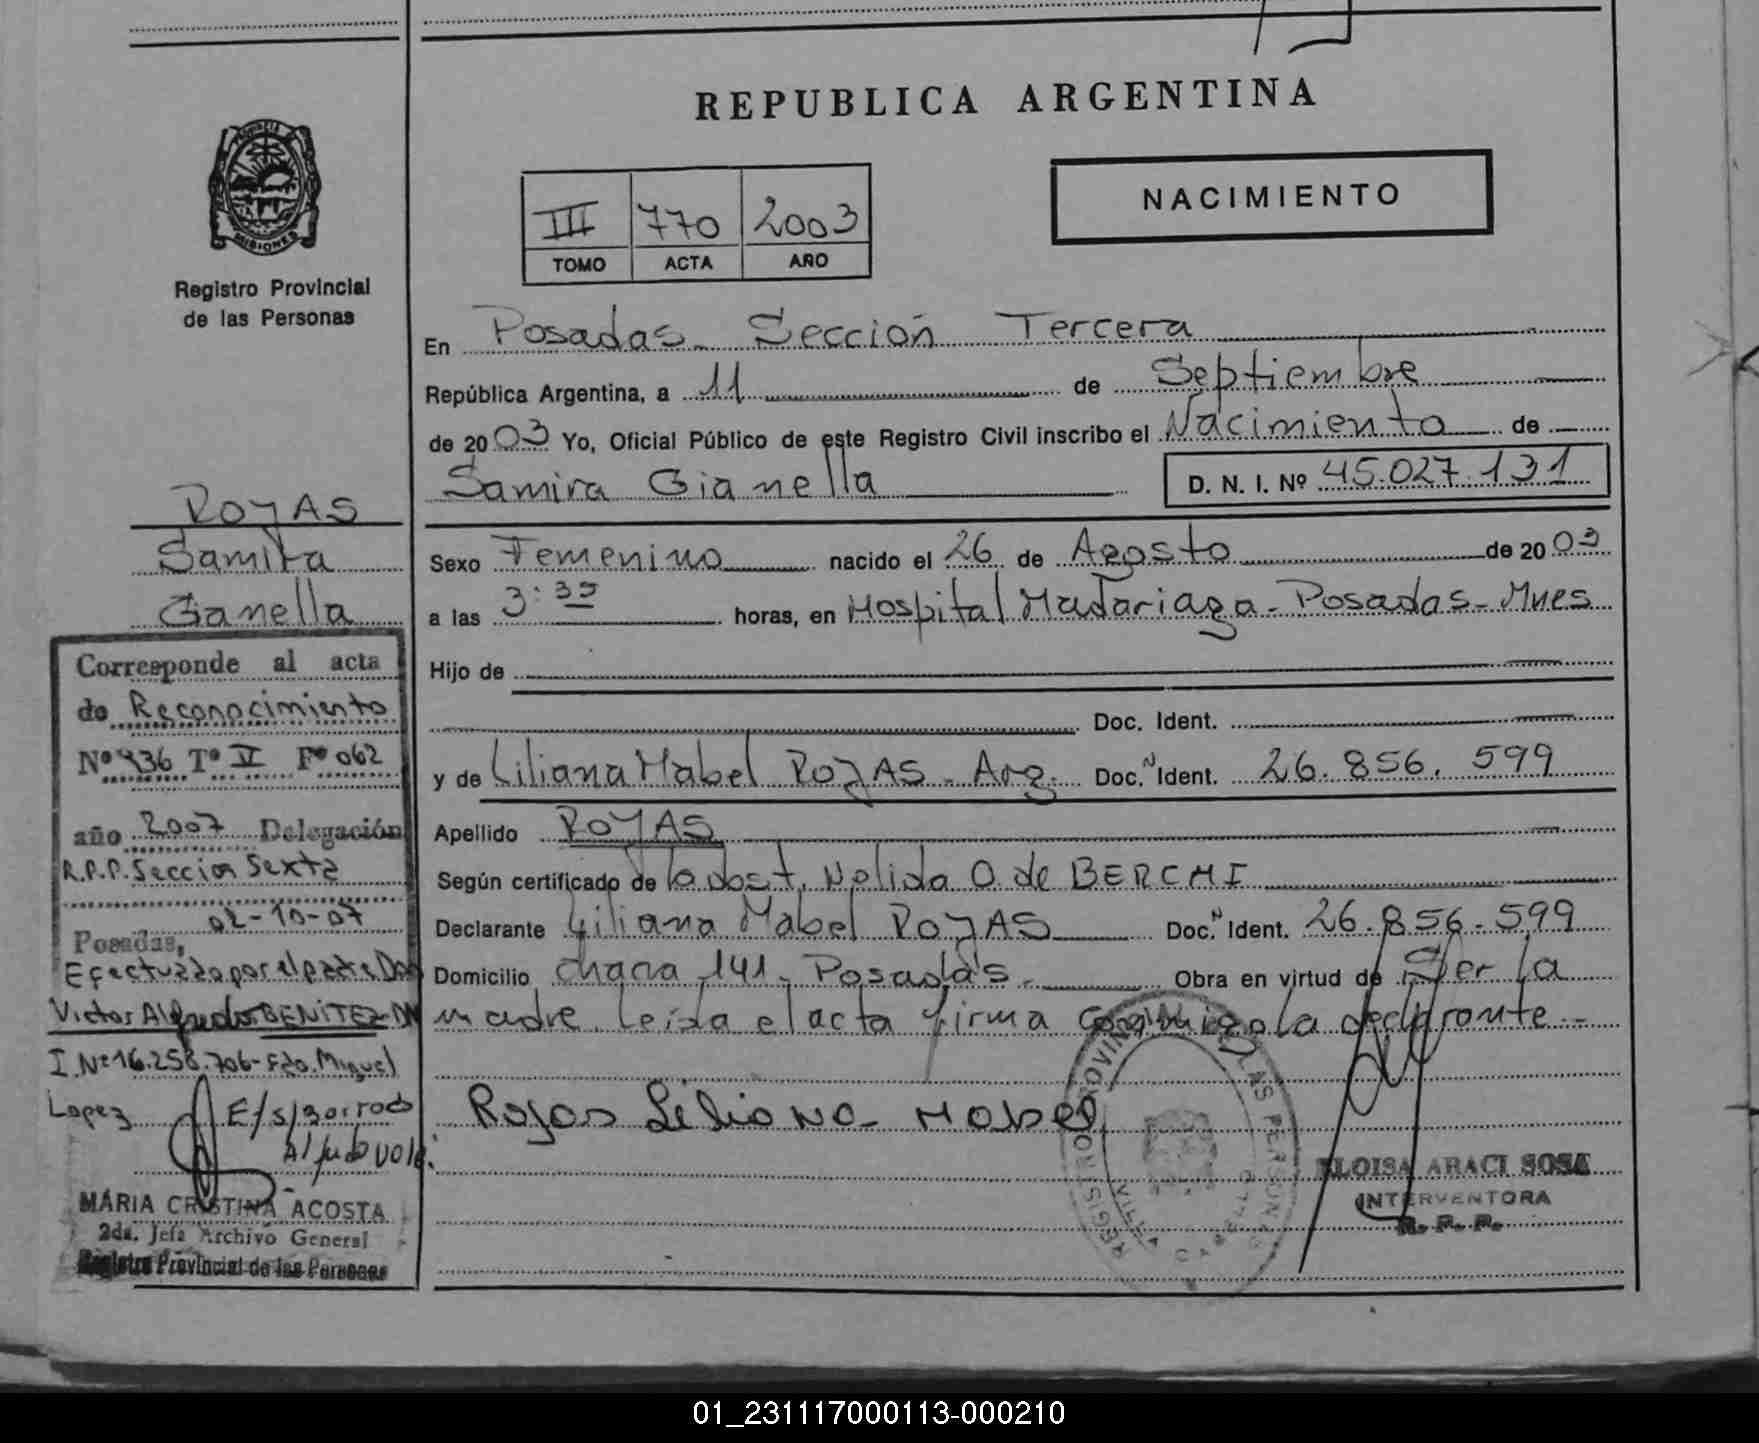 REPUBLICA ARGENTINA
NACIMIENTO
III 770 2003
TOMO ACTA AÑO
PROVINCIA DE MISIONES
Registro Provincial
de las Personas
En Posadas - Sección Tercera
República Argentina, a 11 de Septiembre
de 2003 Yo, Oficial Público de este Registro Civil inscribo el Nacimiento de
Samira Gianella D. N. I. Nº 45.027.131
ROJAS
Samira
Gianella
Sexo Femenino nacido el 26 de Agosto de 2003
a las 3:35 horas, en Hospital Madariaga - Posadas - Mnes
Hijo de
Doc. Ident.
y de Liliana Mabel ROJAS - Arg. Doc. N Ident. 26.856.599
Apellido ROJAS
Según certificado de la obst. Nelida O. de BERCHI
Declarante Liliana Mabel ROJAS Doc. N Ident. 26.856.599
Domicilio chacra 141 - Posadas - Obra en virtud de Ser la
madre. Leída el acta firma conmigo la declarante -
Rojas Liliana Mabel
REGISTRO PROVINCIAL DE LAS PERSONAS
VILLA CABELLO
ELOISA ARACI SOSA
INTERVENTORA
R. P. P.
Corresponde al acta
de Reconocimiento
Nº 936 Tº V Fº 062
año 2007 Delegación
R.P.P. Sección Sexta
02-10-07
Posadas,
Efectuada por el padre Don
Victor Alfredo BENITEZ - DN
I. Nº 16.258.706 - Fdo. Miguel
Lopez
MARIA CRISTINA ACOSTA
2da. Jefa Archivo General
Registro Provincial de las Personas
01_231117000113-000210